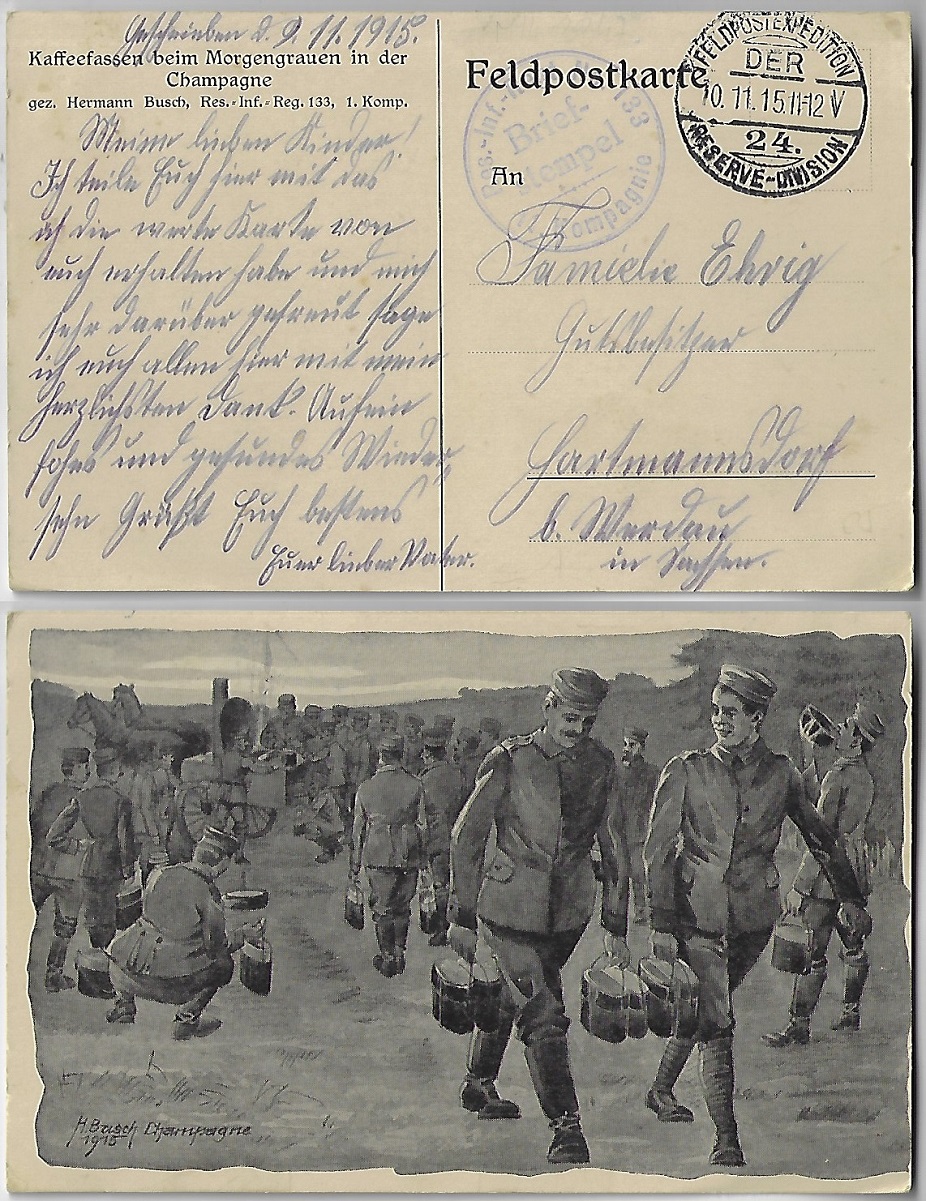 Geschrieben d. 9.11.1915.
Kaffeefassen beim Morgengrauen in der
Champagne
gez. Hermann Busch, Res.-Inf.-Reg. 133, 1. Komp.
Meine lieben Kinder!
Ich teile Euch hier mit das
ich die werte Karte von
euch erhalten habe und mich
sehr darüber gefreut sage
ich euch allen hier mit mein
herzlichsten Dank. Auf ein
frohes und gesundes Wieder,
sehn Grüßt Euch bestens
Euer lieber Vater.
Feldpostkarte
Res.-Inf.- 133
Brief-
stempel
Kompagnie
FELDPOSTEXPEDITION
DER
10.11.15.11-12 V
24.
RESERVE-DIVISION
An
Familie Ehrig
Gutsbesitzer
Hartmannsdorf
b. Werdau
in Sachsen.
H. Busch Champagne
1915